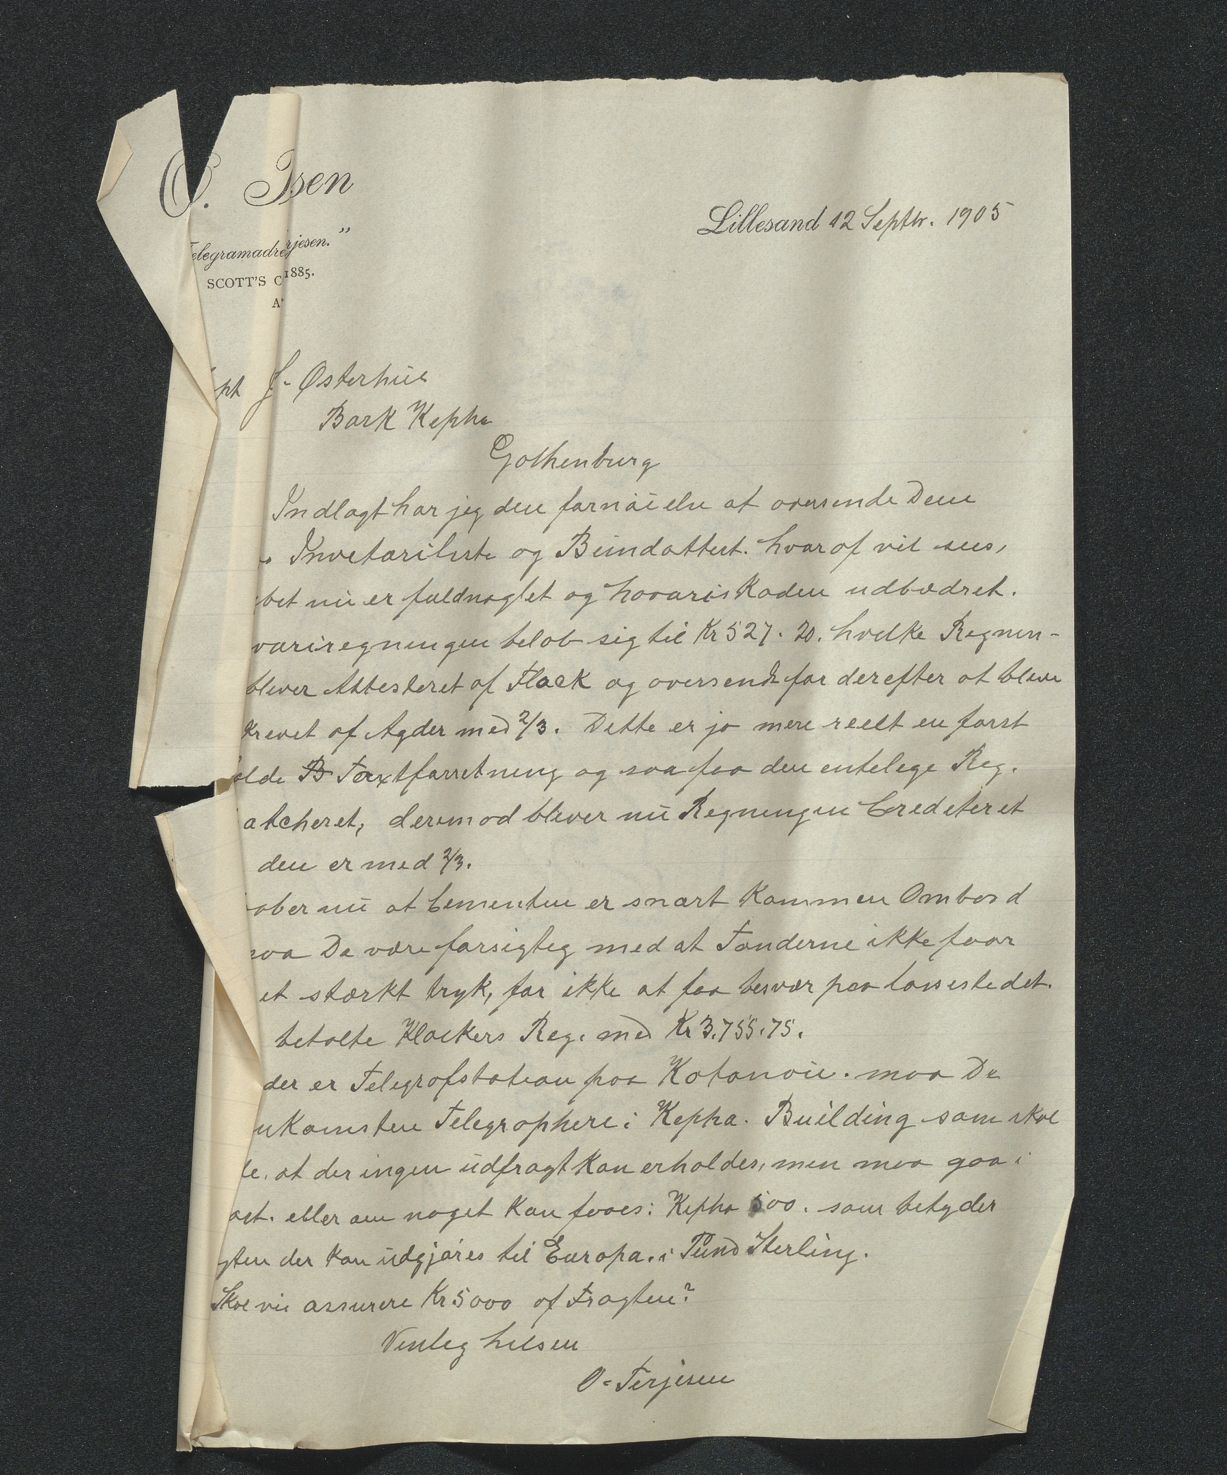 O. Jsen
Lillesand 12 Septbr. 1905
elegramadre rjesen.”
SCOTT'S C 1885.
A
pt J. Østerhus
Bark Kepha
Gothenburg
Indlagt har jeg den fornøielse at oversende Dem
Invetariliste og Bundattest. hvoraf vil sees,
bet nu er fuldnaglet og havariskaden udbedret.
variregningen beløb sig til Kr 527. 20. hvilke Regnin-
bliver Attesteret af Flack og oversendt for derefter at blive
krevet af Agder med 2/3. Dette er jo mere reelt en først
olde og saa faa den entelige Reg.
atcheret, derimod bliver nu Regningen Crediteret
den er med 2/3.
aaber nu at Cementen er snart kommen Ombord
maa De være forsigteg med at Tønderne ikke faar
et stærkt tryk, for ikke at faa besvær paa lossestedet.
betalte Klackers Reg. med Kr 3.755.75.
der er Telegrafstation paa Kotonou. maa De
nkomsten Telegraphere i Kepha. Building som skal
de. at der ingen udfragt kan erholdes, men maa gaa i
ast. eller om noget kan faaes: Kepha 500. som betyder
gten der kan udgjøres til Europa. i Pund Sterling.
Skal vi assurere Kr 5000 af Fragten?
Venleg hilsen
O. Terjesen